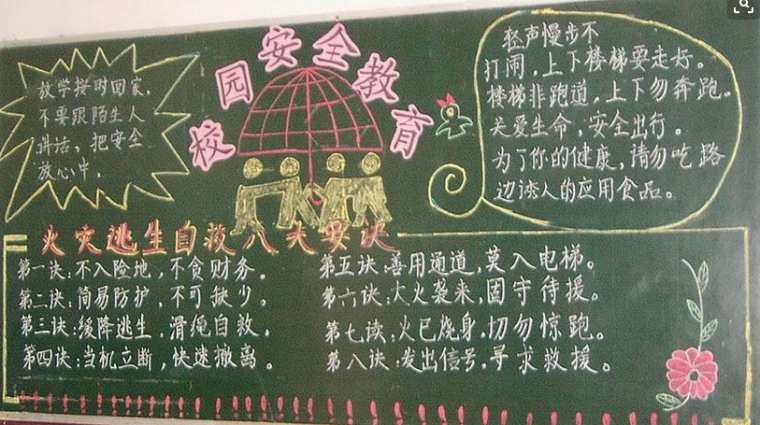 校园安全教育
放学按时回家，
不要跟陌生人
讲话，把安全
放心中，
轻声慢步不
打闹，上下楼梯要走好。
楼梯非跑道，上下勿奔跑。
关爱生命，安全出行。
为了你的健康，请勿吃路
边诱人的应用食品。
火灾逃生自救八大要诀
第一诀:不入险地，不贪财务。
第二诀:简易防护，不可缺少。
第三诀:缓降逃生，滑绳自救。
第四诀:当机立断，快速撤离。
第五诀:善用通道，莫入电梯。
第六诀:大火袭来，固守待援。
第七读:火已烧身，切勿惊跑。
第八诀:发出信号，寻求救援。